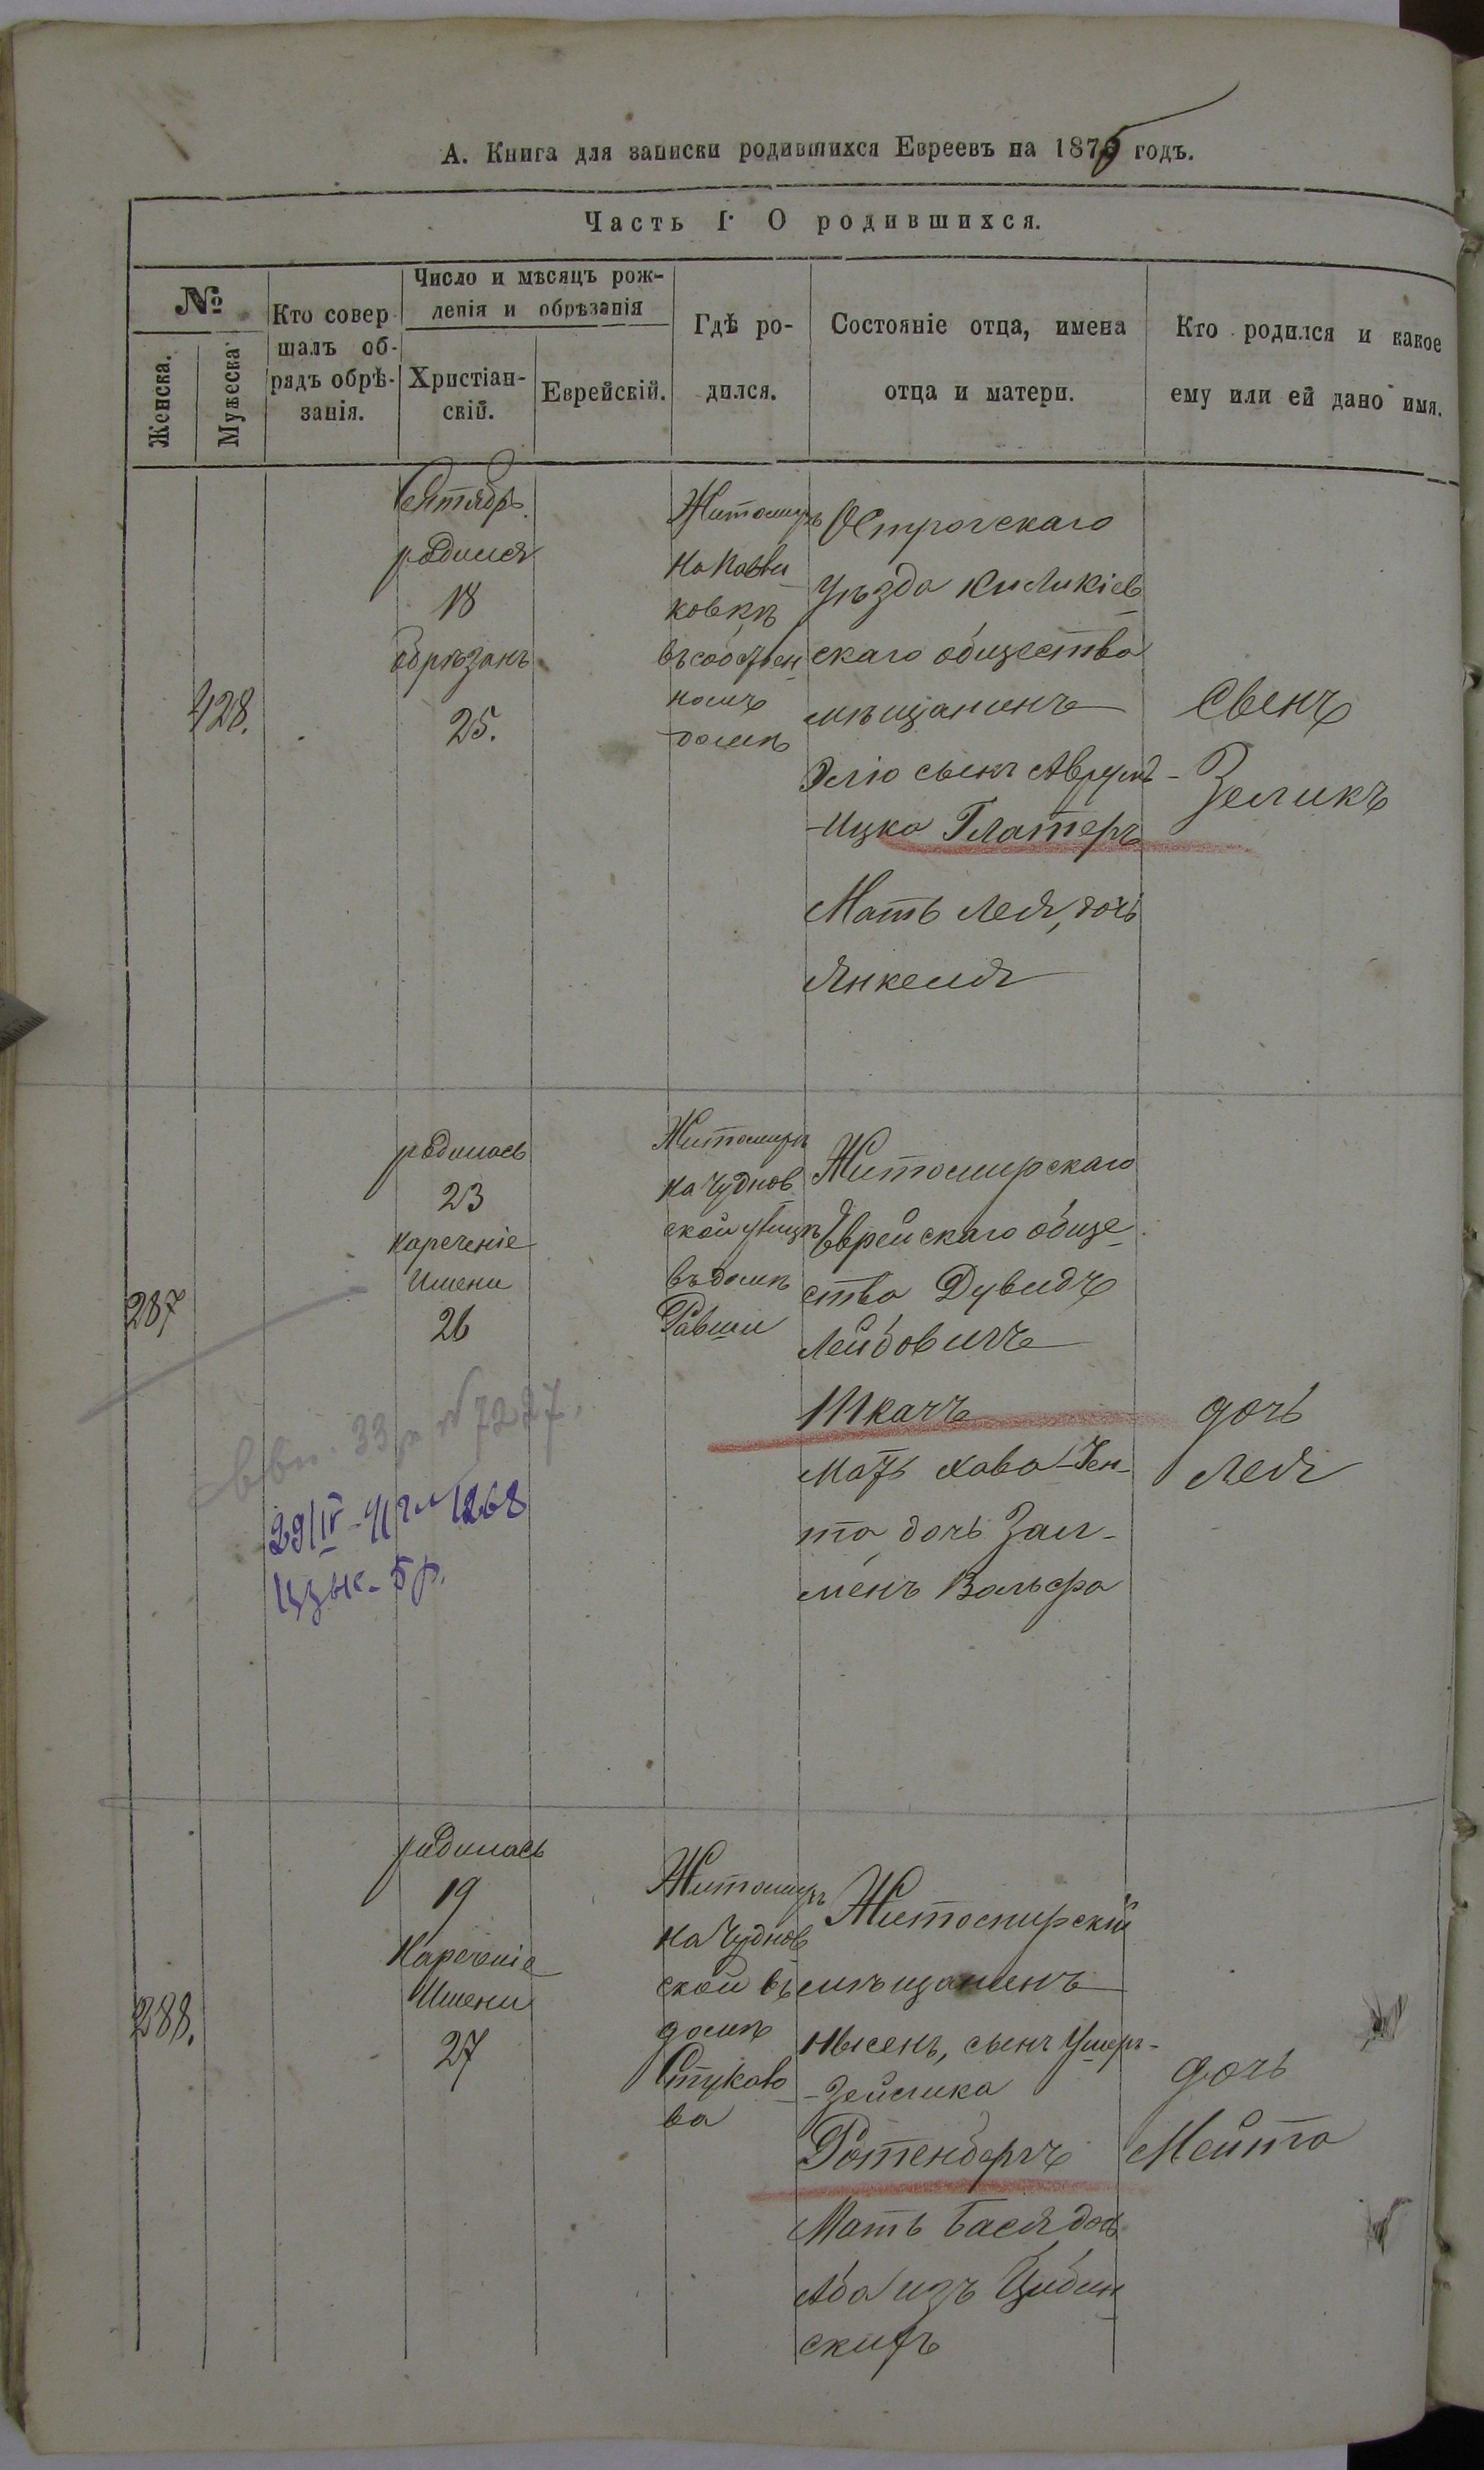 А. Книга для записки родившихся Евреевъ на 1875 годъ.
Часть I. О родившихся.
№
Женска.
Мужеска
Кто совер-
шалъ об-
рядъ обрѣ-
занія.
Число и мѣсяцъ рож-
ленія и обрѣзанія
Христіан-
скій.
Еврейскій.
Гдѣ ро-
дился.
Состояніе отца, имена
отца и матери.
Кто родился и какое
ему или ей дано имя.
428.
Сентябрь
родился
18
обрѣзанъ
25.
Житомиръ
на
ковкѣ
въ собствен
номъ
домѣ
Острогскаго
уѣзда Киликіев
скаго общества
мѣщанинъ
Элю сынъ Аврумъ-
-Ицка Глатеръ
Мать Лея, дочь
Янкеля
Сынъ
Зеликъ
287
родилась
23
нареченіе
имени
26
Житомиръ
на Чуднов
ской улицѣ
въ домѣ
Равши
Житомирскаго
Еврейскаго обще
ства Дувидъ
Лейбовичъ
Ткачъ
Мать Хава-Ген-
та дочь Зал-
менъ Вольфа
дочь
Лея
33 № 7277.
29/IV-41 г. 1268
взыс. 5 р.
288.
родилась
19
Нареченіе
Имени
27
Житомиръ
на Чуднов
ской въ
домѣ
Стуково
ва
Житомирскій
мѣщанинъ
Нысенъ, сынъ Ушеръ-
-Зейлика
Ротенбергъ
Мать Бася дочь
Аба изъ Цибин
скихъ
дочь
Мейта